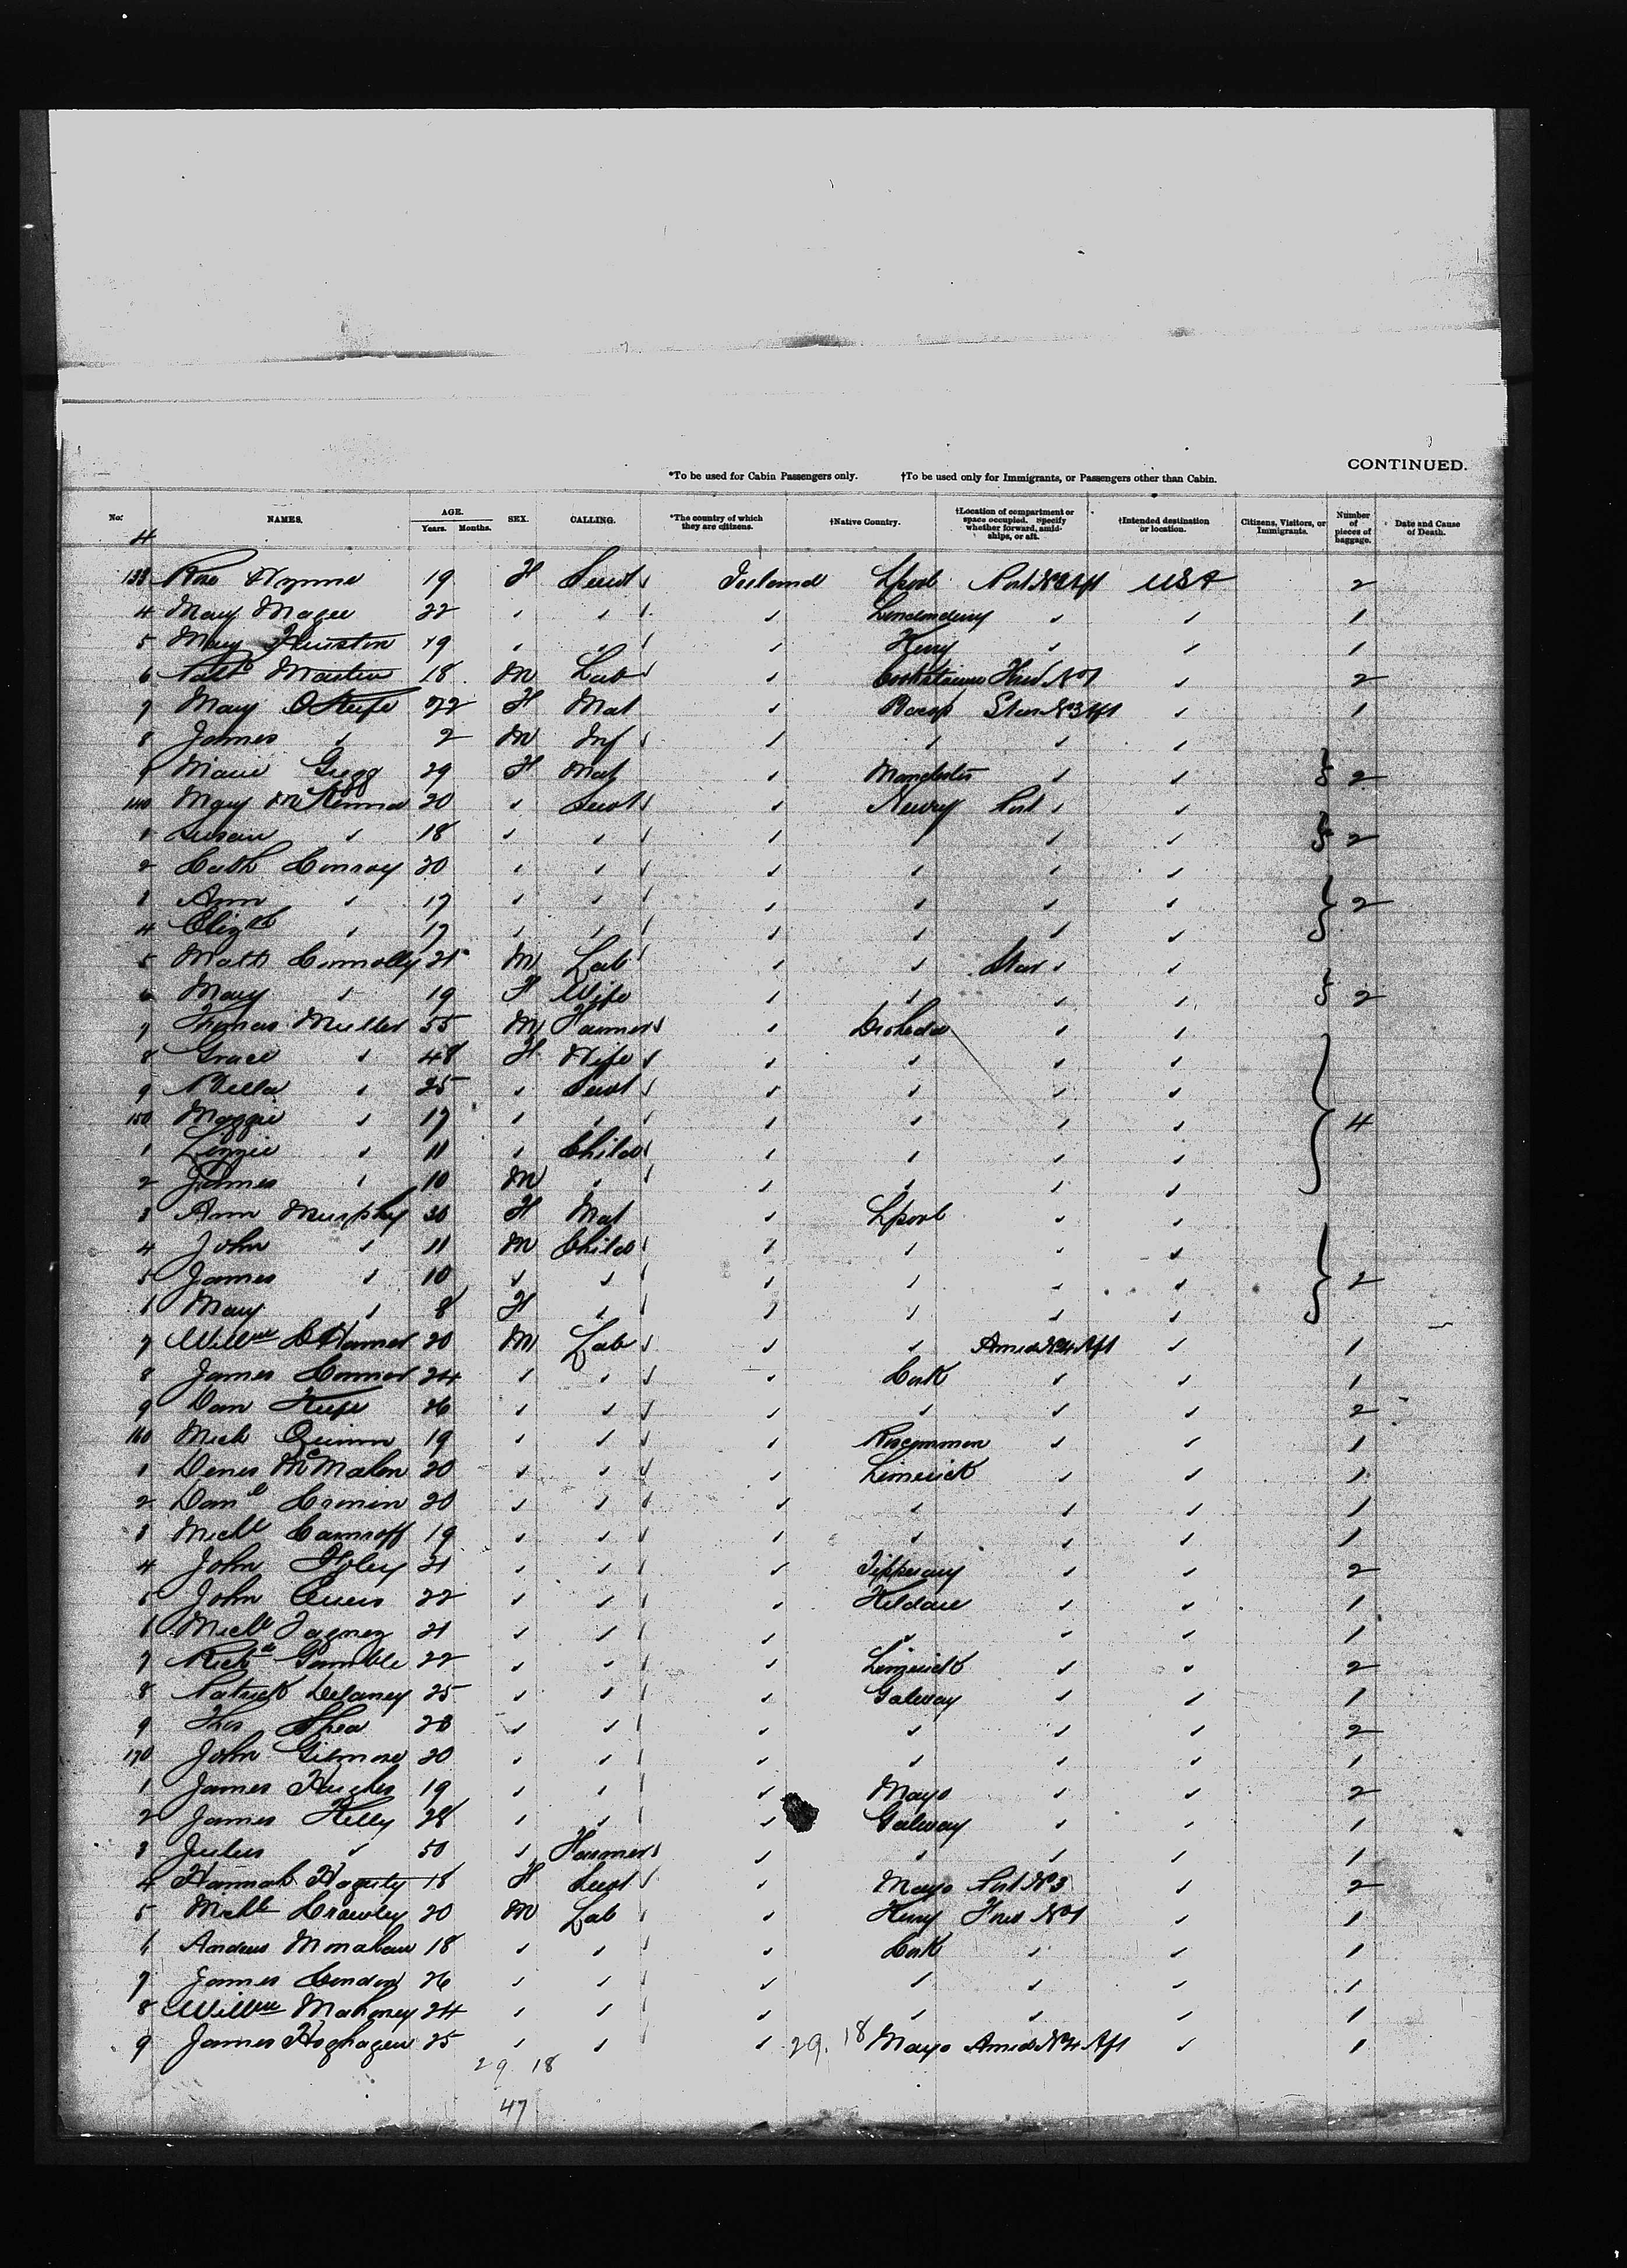 CONTINUED.
*To be used for Cabin Passengers only. †To be used only for Immigrants, or Passengers other than Cabin.
No. NAMES. AGE. Years. Months. SEX. CALLING. *The country of which they are citizens. †Native Country. †Location of compartment or space occupied. Specify whether forward, amidships, or aft. †Intended destination or location. Citizens, Visitors, or Immigrants. Number of pieces of baggage. Date and Cause of Death.
4
133 Rose Wynne 19 F Servt Ireland Lpool Port No 2 Aft USA 2
4 Mary Magee 22 " " " Londonderry " " 1
5 Mary Hueston 19 " " " Kerry " " 1
6 Martin 18 M Lab " Cookstown Fwd No 1 " 2
7 Mary O'Keefe 22 F Mat " Star No 3 Aft " 1
8 James " 2 M Inf " " " "
9 Gregg 29 F Mat " Manchester " " } 2
140 Mary McKenna 20 " Servt " Newry Port " "
1 Susan " 18 " " " " " " } 2
2 Cath Conroy 20 " " " " " "
3 Ann " 17 " " " " " " } 2
4 Elizth " 17 " " " " " "
5 Matt Connolly 21 M Lab " " Star " "
6 Mary " 19 F Wife " " " " } 2
7 Thomas 55 M Farmer " Drogheda " "
8 Grace " 48 F Wife " " " "
9 Bella " 25 " Servt " " " "
150 Maggie " 17 " " " " " " } 4
1 Lizzie " 11 " Child " " " "
2 James " 10 M " " " " "
3 Ann Murphy 30 F Mat " Lpool " "
4 John " 11 M Child " " " "
5 James " 10 " " " " " " } 2
6 Mary " 8 F " " " " "
7 Willm 20 M Lab " " Amids No 4 Aft " 1
8 James Connor 24 " " " Cork " " 1
9 Dan Keefe 26 " " " " " " 2
160 Mich Quinn 19 " " " Roscommon " " 1
1 Denis McMahon 20 " " " Limerick " " 1
2 Danl Cronin 20 " " " " " " 1
3 Michl 19 " " " " " " 1
4 John Foley 21 " " " Tipperary " " 2
5 John 22 " " " Kildare " " 1
6 Michl Tagney 21 " " " " " " 1
7 Richd Gamble 22 " " " Limerick " " 2
8 Patrick Delaney 25 " " " Galway " " 1
9 Thos Shea 20 " " " " " " 2
170 John Gilmore 20 " " " " " " 1
1 James Hughes 19 " " " Mayo " " 2
2 James Kelly 28 " " " Galway " " 1
3 " 50 " Farmer " " " " 1
4 Hannah Hagerty 18 F Servt " Mayo Port No 3 " 2
5 Michl Crowley 20 M Lab " Kerry Fwd No 1 " 1
6 Andrew Monahan 18 " " " Cork " " 1
7 James Condon 26 " " " " " " 1
8 Willm Mahoney 24 " " " " " " 1
9 James 25 " " " 29. 18 Mayo Amids No 4 Aft " 1
29 18
47